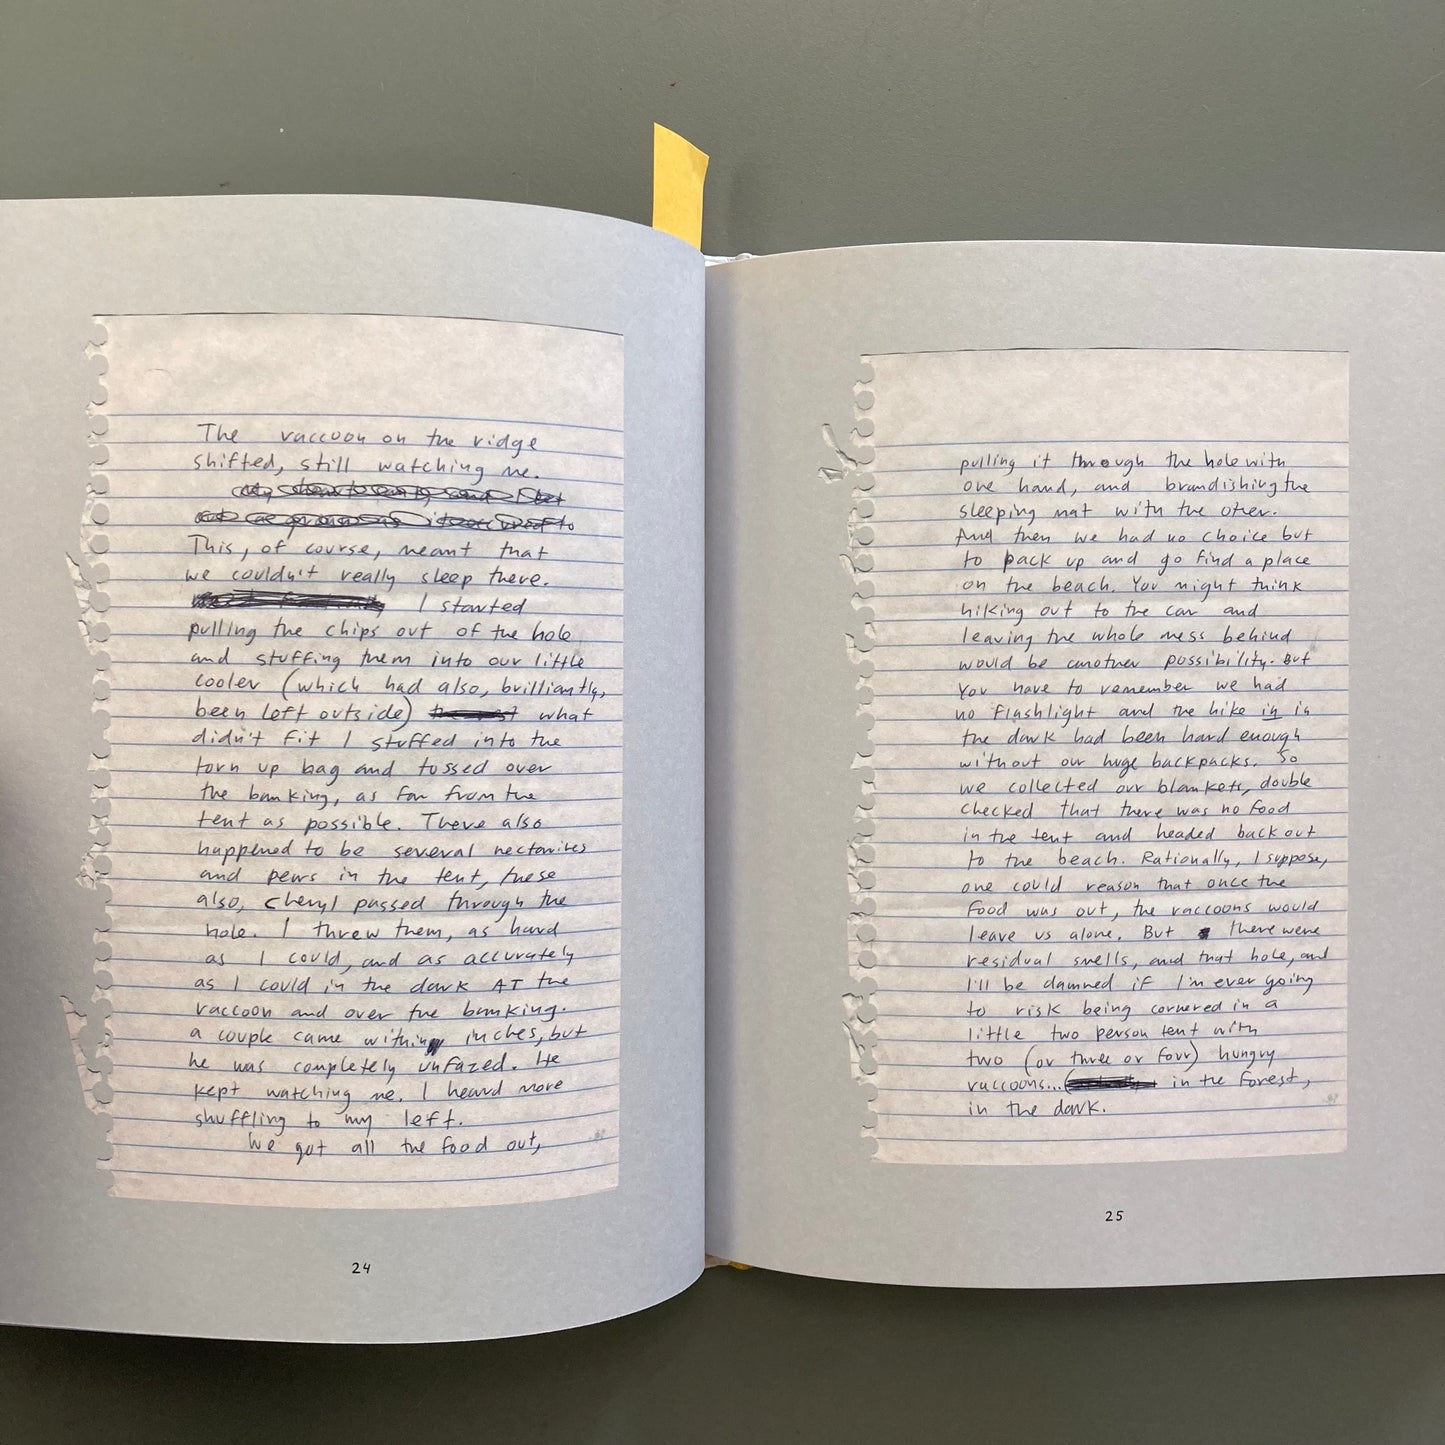 The raccoon on the ridge
shifted, still watching me.
This, of course, meant that
we couldn't really sleep there.
I started
pulling the chips out of the hole
and stuffing them into our little
cooler (which had also, brilliantly,
been left outside) what
didn't fit I stuffed into the
torn up bag and tossed over
the banking, as far from the
tent as possible. There also
happened to be several nectarines
and pears in the tent, these
also, Cheryl passed through the
hole. I threw them, as hard
as I could, and as accurately
as I could in the dark AT the
raccoon and over the banking.
a couple came within inches, but
he was completely unfazed. He
kept watching me. I heard more
shuffling to my left.
We got all the food out,
24
pulling it through the hole with
one hand, and brandishing the
sleeping mat with the other.
And then we had no choice but
to pack up and go find a place
on the beach. You might think
hiking out to the car and
leaving the whole mess behind
would be another possibility. But
You have to remember we had
no flashlight and the hike in in
the dark had been hard enough
without our huge backpacks. So
we collected our blankets, double
checked that there was no food
in the tent and headed back out
to the beach. Rationally, I suppose,
one could reason that once the
food was out, the raccoons would
leave us alone. But there were
residual smells, and that hole, and
I'll be damned if I'm ever going
to risk being cornered in a
little two person tent with
two (or three or four) hungry
raccoons... in the forest,
in the dark.
25